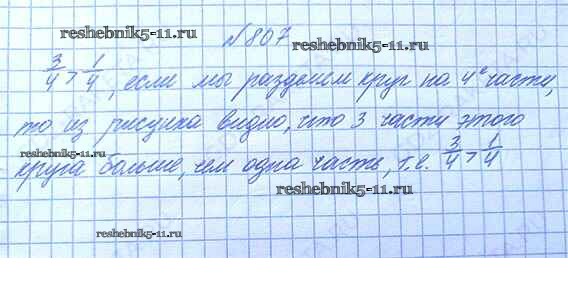 reshebnik5-11.ru
№807
reshebnik5-11.ru
3/4 > 1/4, если мы разделим круг на 4е части,
то из рисунка видно, что 3 части этого
круга больше, чем одна часть, т.е. 3/4 > 1/4
reshebnik5-11.ru
reshebnik5-11.ru